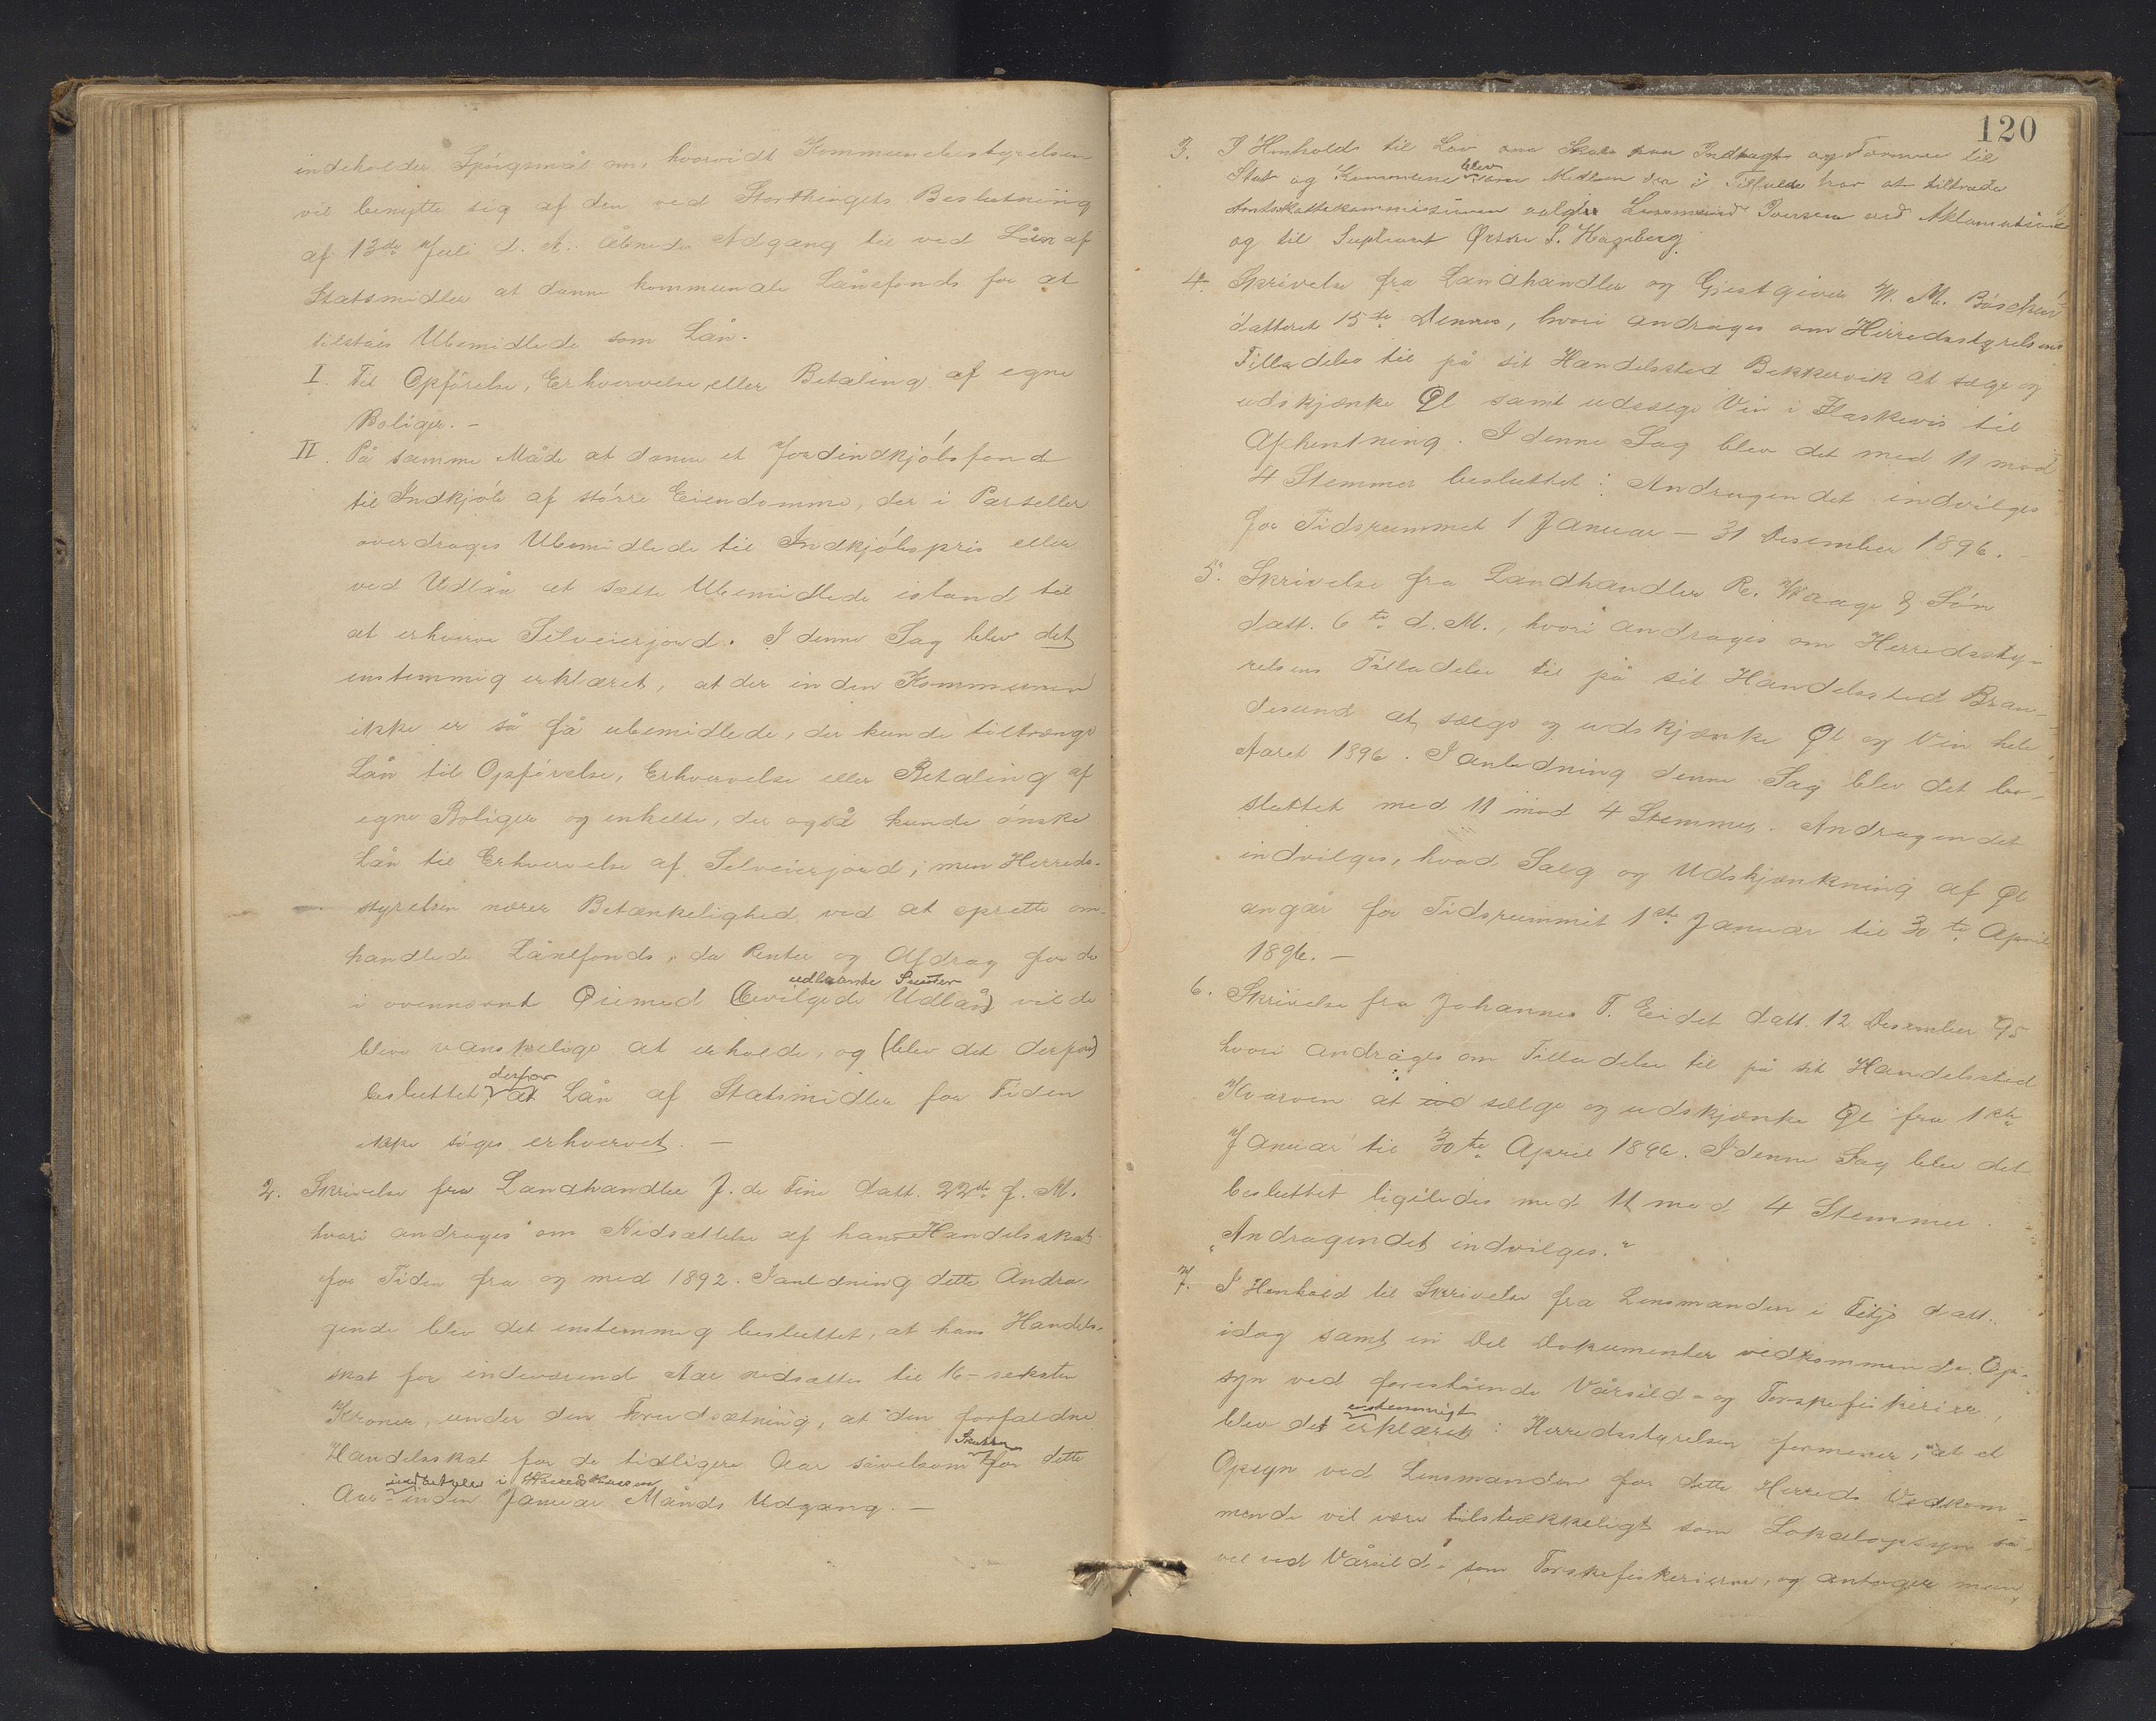 indeholder Spörgsmål om, hvorvidt Kommunebestyrelsen
vil benytte sig af den ved Storthingets Beslutning
af 13de Juli d. A. åbnede Adgang til ved Lån af
Statsmidler at danne kommunale Lånefonds for at
tilståes Ubemidlede som Lån.
I. Til Opförelse, Erhvervelse eller Betaling af egne
Boliger. -
II. På samme Måde at danne et Jordindkjöbsfond
til Indkjöb af större Eiendomme, der i Parseller
overdrages Ubemidlede til Indkjöbspris eller
ved Udlån at sætte Ubemidlede istand til
at erhverve Selveierjord. I denne Sag blev det
enstemmig erklæret, at der inden Kommunen
ikke er så få ubemidlede, der kunde tiltrænge
Lån til Opförelse, Erhvervelse eller Betaling af
egne Boliger og enkelte, der også kunde önske
Lån til Erhvervelse af Selveierjord; men Herreds-
styrelsen nærer Betænkelighed ved at oprette om-
handlede Lånefonds, da Renter og Afdrag for de
udlaante Summer
i ovennævnt Öiemed (bevilgede Udlån) vilde
blive vanskelige at erholde, og (blev det derfor)
derfor
besluttet, at Lån af Statsmidler for Tiden
ikke söges erhvervet. -
2. Skrivelse fra Landhandler J. de Fine datt. 22de f. M.
hvori andrages om Nedsættelse af hans Handelsskat
for Tiden fra og med 1892. I anledning dette Andra-
gende blev det enstemmig besluttet, at hans Handels-
skat for indeværende Aar nedsættes til 16 - seksten
Kroner, under den Forudsætning, at den forfaldne
Skatten
Handelsskat for de tidligere Aar såvelsom for dette
indbetales i Herredskassen
Aar inden Januar Måneds Udgang. -
120
3. I Henhold til Lov om Skat paa Indtægt og Formue til
blev
Stat og Kommune som Medlem der i Tilfælde har at tiltræde
Amtsskattekommissionen valgtes Lensmand Iversen ved Aklamation
og til Supleant Ørske S. Hageberg.
4. Skrivelse fra Landhandler og Gjestgiver W. M. Böschen
datteret 15de Dennes, hvori andrages om Herredsstyrelsens
Tilladelse til på sit Handelssted Bekkervik at sælge og
udskjænke Øl samt udsælge Vin i Flaskevis til
Afhentning. I denne Sag blev det med 11 mod
4 Stemmer besluttet: Andragendet indvilges
for Tidsrummet 1 Januar - 31 Desember 1896. -
5. Skrivelse fra Landhandler R. Waage & Sön
datt. 6te d. M., hvori andrages om Herredssty-
relsens Tilladelse til på sit Handelssted Bran-
desund at sælge og udskjænke Øl og Vin hele
Aaret 1896. I anledning denne Sag blev det be-
sluttet med 11 mod 4 Stemmer. Andragendet
indvilges, hvad Salg og Udskjænkning af Øl
angår for Tidsrummet 1ste Januar til 30te April
1896. -
6. Skrivelse fra Johannes T. Eidet datt. 12 Desember 95
hvori andrages om Tilladelse til på sit Handelssted
Kvarven at sælge og udskjænke Øl fra 1ste
Januar til 30te April 1896. I denne Sag blev det
besluttet ligeledes med 11 mod 4 Stemmer.
"Andragendet indvilges."
7. I Henhold til Skrivelse fra Lensmanden i Fitje datt.
idag samt en Del Dokumenter vedkommende Op-
syn ved forestående Vårsild- og Torskefiskerier,
enstemmigt
blev det erklæret: Herredsstyrelsen formener, at et
Opsyn ved Lensmanden for dette Herreds Vedkom-
mende vil være tilstrækkeligt som Lokalopsyn så-
vel ved Vårsild- som Torskefiskerierne, og antager man,